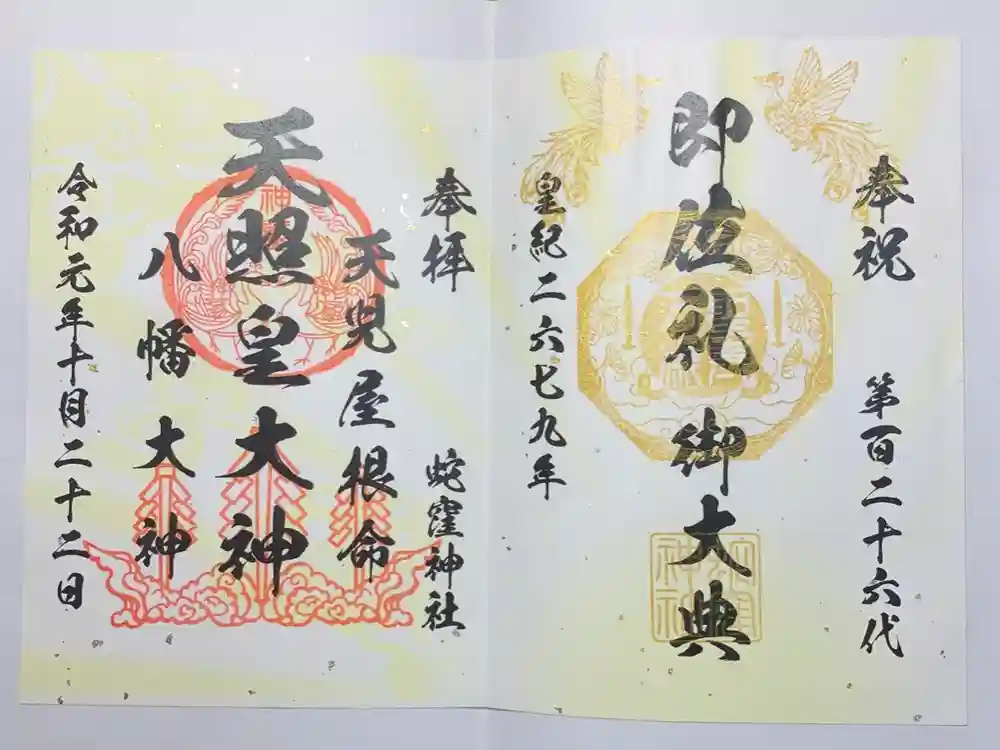 奉祝
第百二十六代
即位礼御大典
皇紀二六七九年
奉拝
蛇窪神社
天児屋根命
天照皇大神
八幡大神
令和元年十月二十二日
神